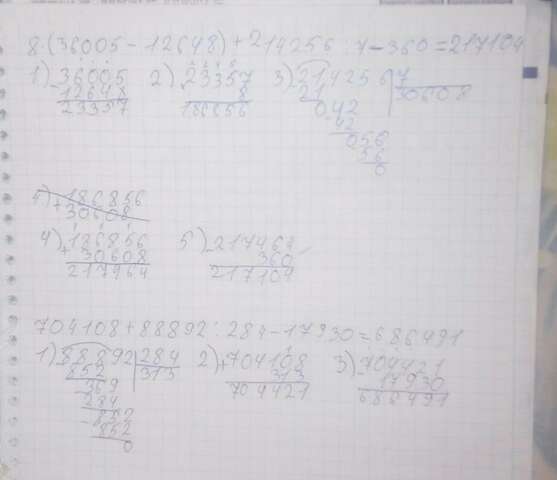 8·(36005-12648)+214256:7-360=217104
1) 36005 2) 23357 3) 214256 7
- 12648 8 21 30608
23357 186856 042
42
056
56
0
4) 186856
+ 30608
4) 186856 5) 217464
+ 30608 360
217464 217104
704108+88892:284-17930=686491
1) 88892 284 2) 704108 3) 704421
852 313 + 313 17930
369 704421 686491
284
- 852
852
0